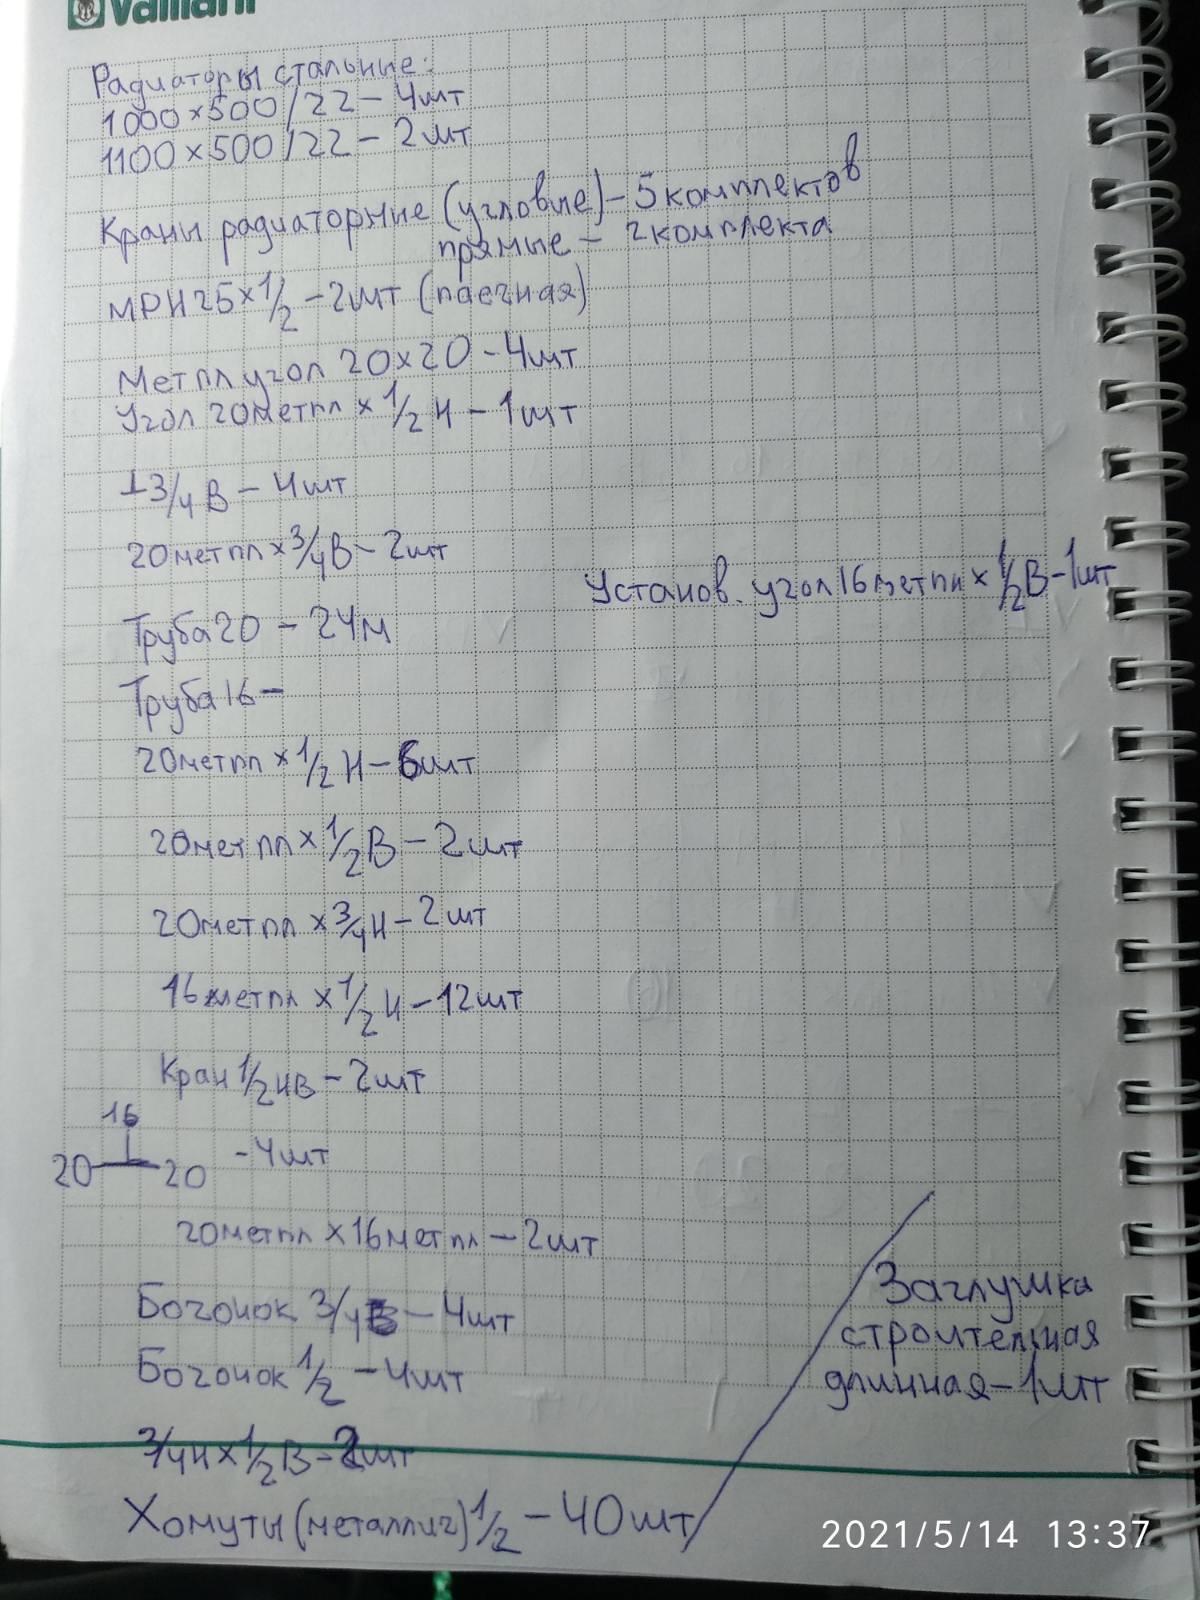 Vaillant
Радиаторы стальные:
1000×500/22 – 4шт
1100×500/22 – 2шт
Краны радиаторные (угловые) – 5 комплектов
прямые – 2 комплекта
МРН 25×1/2 – 2шт (паечная)
Метпл угол 20×20 – 4шт
Угол 20метпл × 1/2 Н – 1шт
⊥3/4 В – 4шт
20метпл × 3/4В – 2шт
Установ. угол 16метпл × 1/2В – 1шт
Труба 20 – 24м
Труба 16 –
20метпл × 1/2 Н – 6шт
20метпл × 1/2В – 2шт
20метпл × 3/4Н – 2шт
16метпл × 1/2Н – 12шт
Кран 1/2НВ – 2шт
16
20 ⊥ 20 – 4шт
20метпл × 16метпл – 2шт
Богонок 3/4В – 4шт
Богонок 1/2 – 4шт
3/4Н × 1/2В – 2шт
Хомуты (металлич) 1/2 – 40шт
Заглушка
строительная
длинная – 1шт
2021/5/14 13:37